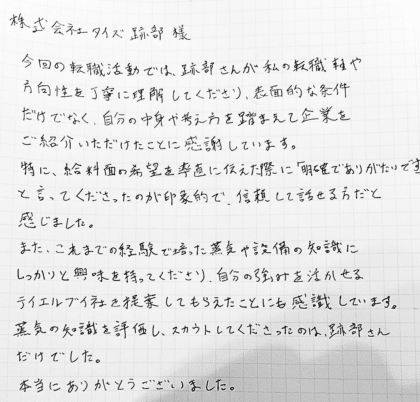 株式会社タイズ 跡部 様
今回の転職活動では、跡部さんが私の転職軸や
方向性を丁寧に理解してくださり、表面的な条件
だけでなく、自分の中身や考え方を踏まえて企業を
ご紹介いただけたことに感謝しています。
特に、給料面の希望を率直に伝えた際に「明確でありがたいです
と言ってくださったのが印象的で、信頼して話せる方だと
感じました。
また、これまでの経験で培った蒸気や設備の知識に
しっかりと興味を持ってくださり、自分の強みを活かせる
テイエルブイ社を提案してもらえたことにも感識しています。
蒸気の知識を評価し、スカウトしてくださったのは、跡部さん
だけでした。
本当にありがとうございました。